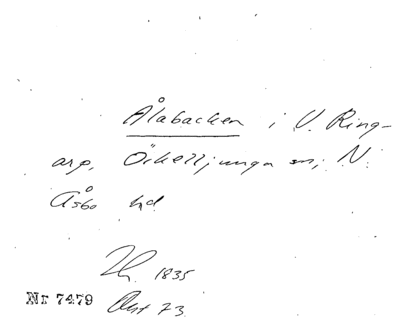 Ålabacken i V. Ring-
arp, Örkelljunga sn, N.
Åsbo hd
1835
Nr 7479 Akt 73